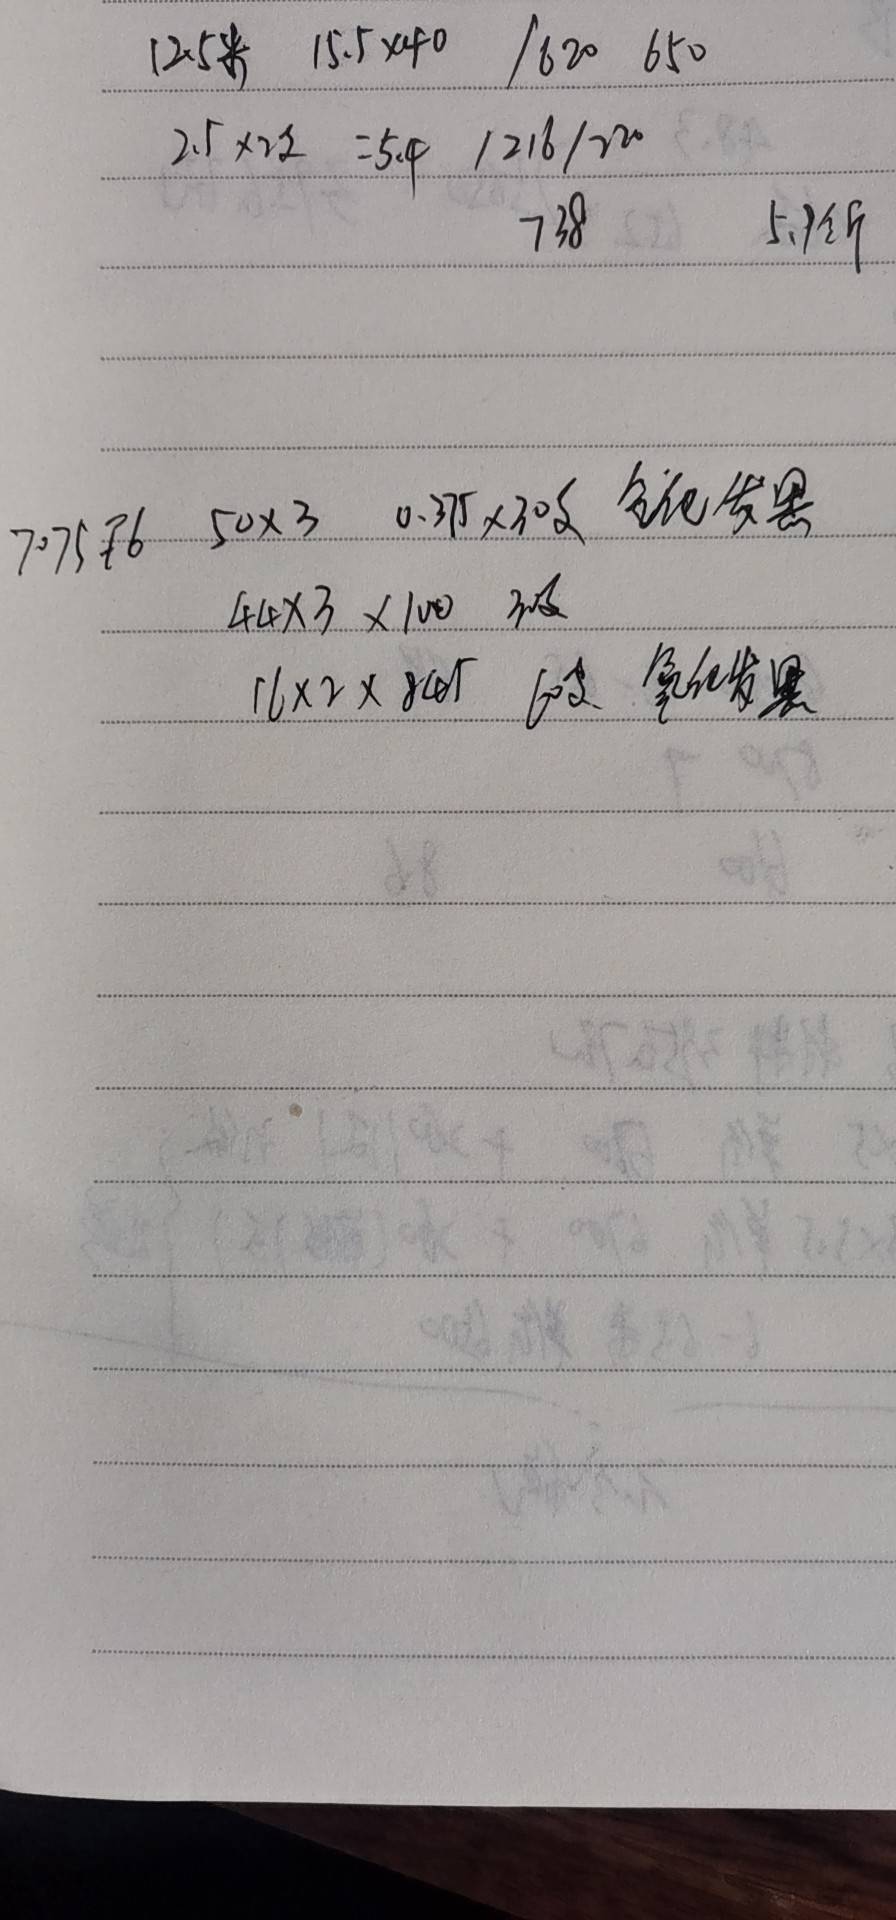 12.5米 15.5×40 /620 650
2.5×2支 =5.4 /216/220
738 5.9公斤
7075T6 50×3 0.375×30支 氧化发黑
44×3×100 3支
16×2×845 60支 氧化发黑